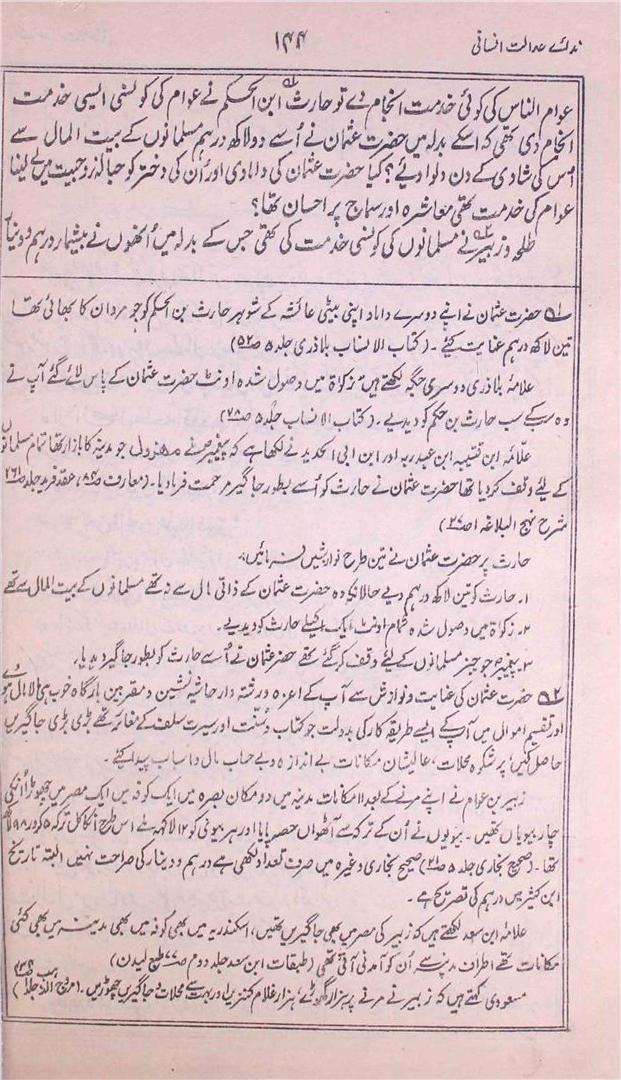 ندائے عدالت انسانی
۱۴۴
عوام الناس کی کوئی خدمت انجام دے تو حارث ابن الحکم نے عوام کی کونسی ایسی خدمت
انجام دی تھی کہ اسکے بدلہ میں حضرت عثمان نے اُسے دو لاکھ درہم مسلمانوں کے بیت المال سے
اس کی شادی کے دن دلوا دیئے؟ کیا حضرت عثمان کی دامادی اور اُن کی دختر کو حبالۂ زوجیت میں لے لینا
عوام کی خدمت تھی معاشرہ اور سماج پر احسان تھا؟
طلحہ و زبیر نے مسلمانوں کی کونسی خدمت کی تھی جس کے بدلہ میں اُنھوں نے بیشمار درہم و دینار
۱؎ حضرت عثمان نے اپنے دوسرے داماد اپنی بیٹی عائشہ کے شوہر حارث بن الحکم کو جو مردان کا بھائی تھا
تین لاکھ درہم عنایت کئے۔ (کتاب الانساب بلاذری جلد ۵ ص۵۲)
علامہ بلاذری دوسری جگہ لکھتے ہیں زکوٰۃ میں وصول شدہ اونٹ حضرت عثمان کے پاس لائے گئے آپ نے
وہ سب کے سب حارث بن حکم کو دیدیے۔ (کتاب الانساب جلد ۵ ص۲۸)
علامہ ابن قتیبہ ابن عبدربہ اور ابن ابی الحدید نے لکھا ہے کہ پیغمبر نے مہزول جو مدینہ کا بازار تھا تمام مسلمانوں
کے لئے وقف کر دیا تھا حضرت عثمان نے حارث کو اُسے بطور جاگیر مرحمت فرما دیا۔ (معارف ص۸۴، عقد فرید جلد ۲ ص۲۶۱
شرح نہج البلاغہ ۱ ص۶۷)
حارث پر حضرت عثمان نے تین طرح نوازشیں فرمائیں:
۱۔ حارث کو تین لاکھ درہم دیے حالانکہ وہ حضرت عثمان کے ذاتی مال سے نہ تھے مسلمانوں کے بیت المال سے تھے
۲۔ زکوٰۃ میں وصول شدہ تمام اونٹ ایک اکیلے حارث کو دیدیے۔
۳۔ پیغمبر جو چیز مسلمانوں کے لئے وقف کر گئے تھے حضرت عثمان نے اُسے حارث کو بطور جاگیر دیدیا۔
۲؎ حضرت عثمان کی عنایت و نوازش سے آپ کے اعزہ و رشتہ دار حاشیہ نشین و مقربین بارگاہ خوب ہی مالا مال ہوئے
اور تقسیم اموال میں آپ کے ایسے طریقہ کار کی بدولت جو کتاب و سنت اور سیرت سلف کے مغائر تھے بڑی بڑی جاگیریں
حاصل کیں، پر شکوہ محلات، عالیشان مکانات بے اندازہ و بے حساب مال و اسباب پیدا کیئے۔
زبیر بن عوام نے اپنے مرنے کے بعد ۱۱ مکانات مدینہ میں دو مکان بصرہ میں ایک کوفہ میں ایک مصر میں چھوڑا اُنکی
چار بیویاں تھیں۔ بیویوں نے اُن کے ترکہ سے آٹھواں حصہ پایا اور ہر بیوی کو ۱۲ لاکھ ملے اس طرح انکا کل ترکہ ۵ کرور ۹۸ لاکھ
تھا۔ (صحیح بخاری جلد ۵ ص۲۱) صحیح بخاری وغیرہ میں صرف تعداد لکھی ہے درہم و دینار کی صراحت نہیں البتہ تاریخ
ابن کثیر میں درہم کی تصریح ہے۔
علامہ ابن سعد لکھتے ہیں کہ زبیر کی مصر میں بھی جاگیریں تھیں، اسکندریہ میں بھی کوفہ میں بھی مدینہ میں بھی کئی
مکانات تھے اطراف مدینہ سے اُن کو آمدنی آتی تھی (طبقات ابن سعد جلد دوم ص۷۷ طبع لیدن)
مسعودی کہتے ہیں کہ زبیر نے مرنے پر ہزار گھوڑے، ہزار غلام کنیزیں اور بہت سے محلات و جاگیریں چھوڑیں۔ (مروج الذہب جلد ۱